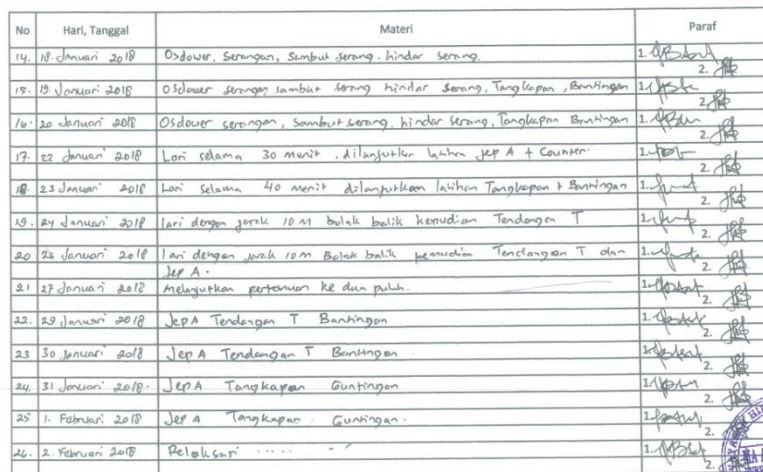 No Hari, Tanggal Materi Paraf
14. 18. Januari 2018 Osdower, Serangan, Sambut serang. hindar serang. 1.
2.
15. 19 Januari 2018 Osdower serangan sambut serang hindar serang, Tangkapan, Bantingan 1.
2.
16. 20 Januari 2018 Osdower serangan, Sambut serang, hindar serang, Tangkapan Bantingan 1.
2.
17. 22 Januari 2018 Lari selama 30 menit, dilanjutkan latihan Jep A + Counter. 1.
2.
18. 23 Januari 2018 Lari selama 40 menit dilanjutkan latihan Tangkapan + Bantingan 1.
2.
19. 24 Januari 2018 lari dengan jarak 10 M bolak balik kemudian Tendangan T 1.
2.
20 26 Januari 2018 lari dengan jarak 10m Bolak balik kemudian Tendangan T dan 1.
Jep A. 2.
21 27 Januari 2018 Melanjutkan pertemuan ke dua puluh. 1.
2.
22. 29 Januari 2018 Jep A Tendangan T Bantingan 1.
2.
23 30 Januari 2018 Jep A Tendangan T Bantingan 1.
2.
24. 31 Januari 2018. Jep A Tangkapan Guntingan 1.
2.
25 1. Februari 2018 Jep A Tangkapan Guntingan. 1.
2.
26. 2. Februari 2018 Relaksasi ..... 1.